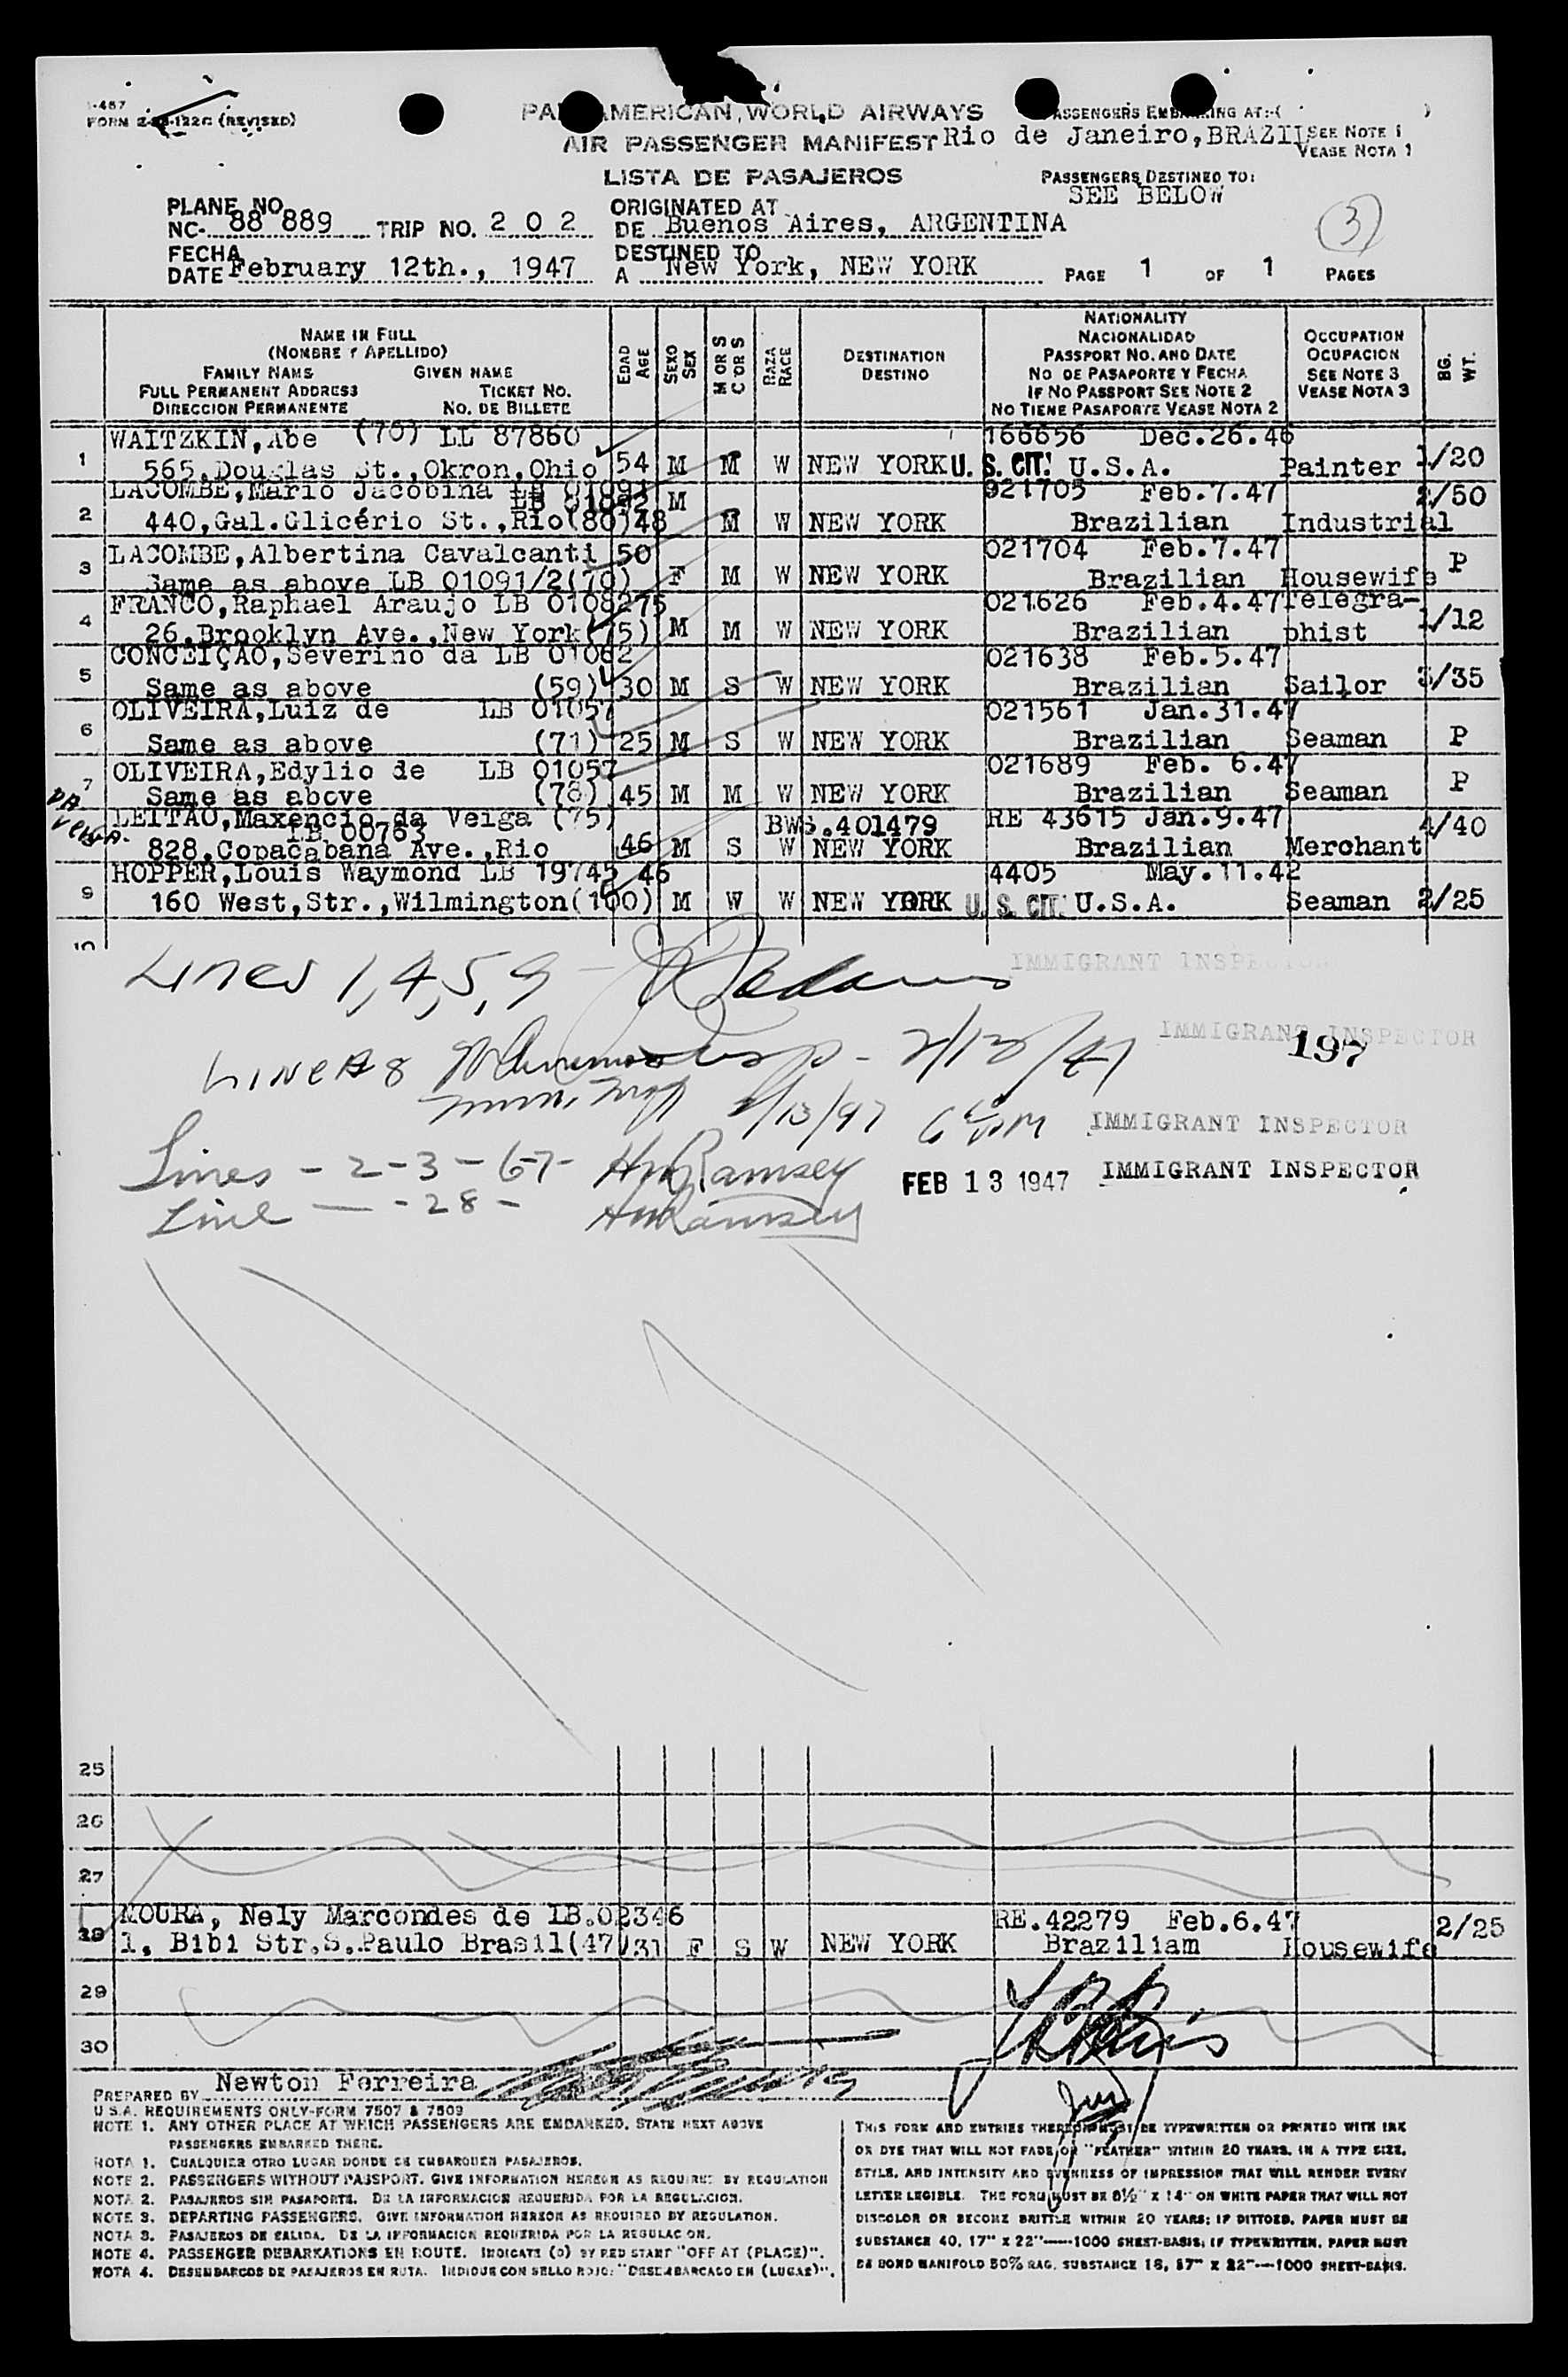 FORM (REVISED)
PAN AMERICAN WORLD AIRWAYS
PASSENGERS EMBARKING AT:-( )
AIR PASSENGER MANIFEST Rio de Janeiro, BRAZIL SEE NOTE 1
VEASE NOTA 1
LISTA DE PASAJEROS
PASSENGERS DESTINED TO:
SEE BELOW
PLANE NO.
NC- 88 889 TRIP NO. 2 0 2
ORIGINATED AT
DE Buenos Aires, ARGENTINA
(3)
FECHA
DATE February 12th., 1947
DESTINED TO
A New York, NEW YORK
PAGE 1 OF 1 PAGES
NAME IN FULL
(NOMBRE Y APELLIDO)
FAMILY NAME GIVEN NAME
FULL PERMANENT ADDRESS TICKET NO.
DIRECCION PERMANENTE NO. DE BILLETE
EDAD AGE
SEXO SEX
M OR S C OR S
RAZA RACE
DESTINATION
DESTINO
NATIONALITY
NACIONALIDAD
PASSPORT NO. AND DATE
NO DE PASAPORTE Y FECHA
IF NO PASSPORT SEE NOTE 2
NO TIENE PASAPORTE VEASE NOTA 2
OCCUPATION
OCUPACION
SEE NOTE 3
VEASE NOTA 3
BG. WT.
WAITZKIN, Abe (70) LL 87860 166656 Dec.26.46
1 565, Douglas St., Okron, Ohio 54 M M W NEW YORK U. S. CIT. U.S.A. Painter 1/20
LACOMBE, Mario Jacobina LB 01091 M 021705 Feb.7.47 2/50
LB 01092
2 440, Gal. Glicério St., Rio (80) 48 M W NEW YORK Brazilian Industrial
LACOMBE, Albertina Cavalcanti 50 021704 Feb.7.47
3 Same as above LB 01091/2 (70) F M W NEW YORK Brazilian Housewife P
FRANCO, Raphael Araujo LB 0108275 021626 Feb.4.47 Telegra-
4 26, Brooklyn Ave., New York (75) M M W NEW YORK Brazilian phist 1/12
CONCEIÇAO, Severino da LB 01062 021638 Feb.5.47
5 Same as above (59) 30 M S W NEW YORK Brazilian Sailor 3/35
OLIVEIRA, Luiz de LB 01057 021561 Jan.31.47
6 Same as above (71) 25 M S W NEW YORK Brazilian Seaman P
OLIVEIRA, Edylio de LB 01057 021689 Feb. 6.47
7 Same as above (78) 45 M M W NEW YORK Brazilian Seaman P
DA Veiga.
LEITAO, Maxencio da Veiga (75) RE 43615 Jan.9.47
LB 00763 BWS.401479 4/40
828, Copacabana Ave., Rio 46 M S W NEW YORK Brazilian Merchant
HOPPER, Louis Waymond LB 19745 46 4405 May.11.42
9 160 West, Str., Wilmington (100) M W W NEW YORK U. S. CIT. U.S.A. Seaman 2/25
10
Lines 1, 4, 5, 9 - IMMIGRANT INSPECTOR
Line 8 - 2/13/47 IMMIGRANT INSPECTOR
197
2/13/47 IMMIGRANT INSPECTOR
Lines - 2-3-6-7- HMRamsey FEB 13 1947 IMMIGRANT INSPECTOR
Line - - 28 - HMRamsey
25
26
27
MOURA, Nely Marcondes de LB.02346 RE.42279 Feb.6.47
28 1, Bibi Str. S. Paulo Brasil (47) 31 F S W NEW YORK Braziliam Housewife 2/25
29
30
PREPARED BY Newton Ferreira
U.S.A. REQUIREMENTS ONLY-FORM 7507 & 7509
NOTE 1. ANY OTHER PLACE AT WHICH PASSENGERS ARE EMBARKED, STATE NEXT ABOVE
PASSENGERS EMBARKED THERE.
NOTA 1. CUALQUIER OTRO LUGAR DONDE SE EMBARQUEN PASAJEROS.
NOTE 2. PASSENGERS WITHOUT PASSPORT. GIVE INFORMATION HEREON AS REQUIRED BY REGULATION
NOTA 2. PASAJEROS SIN PASAPORTE. DE LA INFORMACION REQUERIDA POR LA REGULACION.
NOTE 3. DEPARTING PASSENGERS. GIVE INFORMATION HEREON AS REQUIRED BY REGULATION.
NOTA 3. PASAJEROS DE SALIDA. DE LA INFORMACION REQUERIDA POR LA REGULACION.
NOTE 4. PASSENGER DEBARKATIONS EN ROUTE. INDICATE (D) BY RED START "OFF AT (PLACE)".
NOTA 4. DESEMBARCOS DE PASAJEROS EN RUTA. INDIQUE CON SELLO ROJO: "DESEMBARCADO EN (LUGAR)".
THIS FORM AND ENTRIES THEREON MUST BE TYPEWRITTEN OR PRINTED WITH INK
OR DYE THAT WILL NOT FADE OR "FEATHER" WITHIN 20 YEARS, IN A TYPE SIZE,
STYLE, AND INTENSITY AND EVENNESS OF IMPRESSION THAT WILL RENDER EVERY
LETTER LEGIBLE. THE FORM MUST BE 8½" X 14" ON WHITE PAPER THAT WILL NOT
DISCOLOR OR BECOME BRITTLE WITHIN 20 YEARS; IF DITTOED, PAPER MUST BE
SUBSTANCE 40, 17" X 22"----1000 SHEET-BASIS; IF TYPEWRITTEN, PAPER MUST
BE BOND MANIFOLD 50% RAG, SUBSTANCE 16, 17" X 22"---1000 SHEET-BASIS.